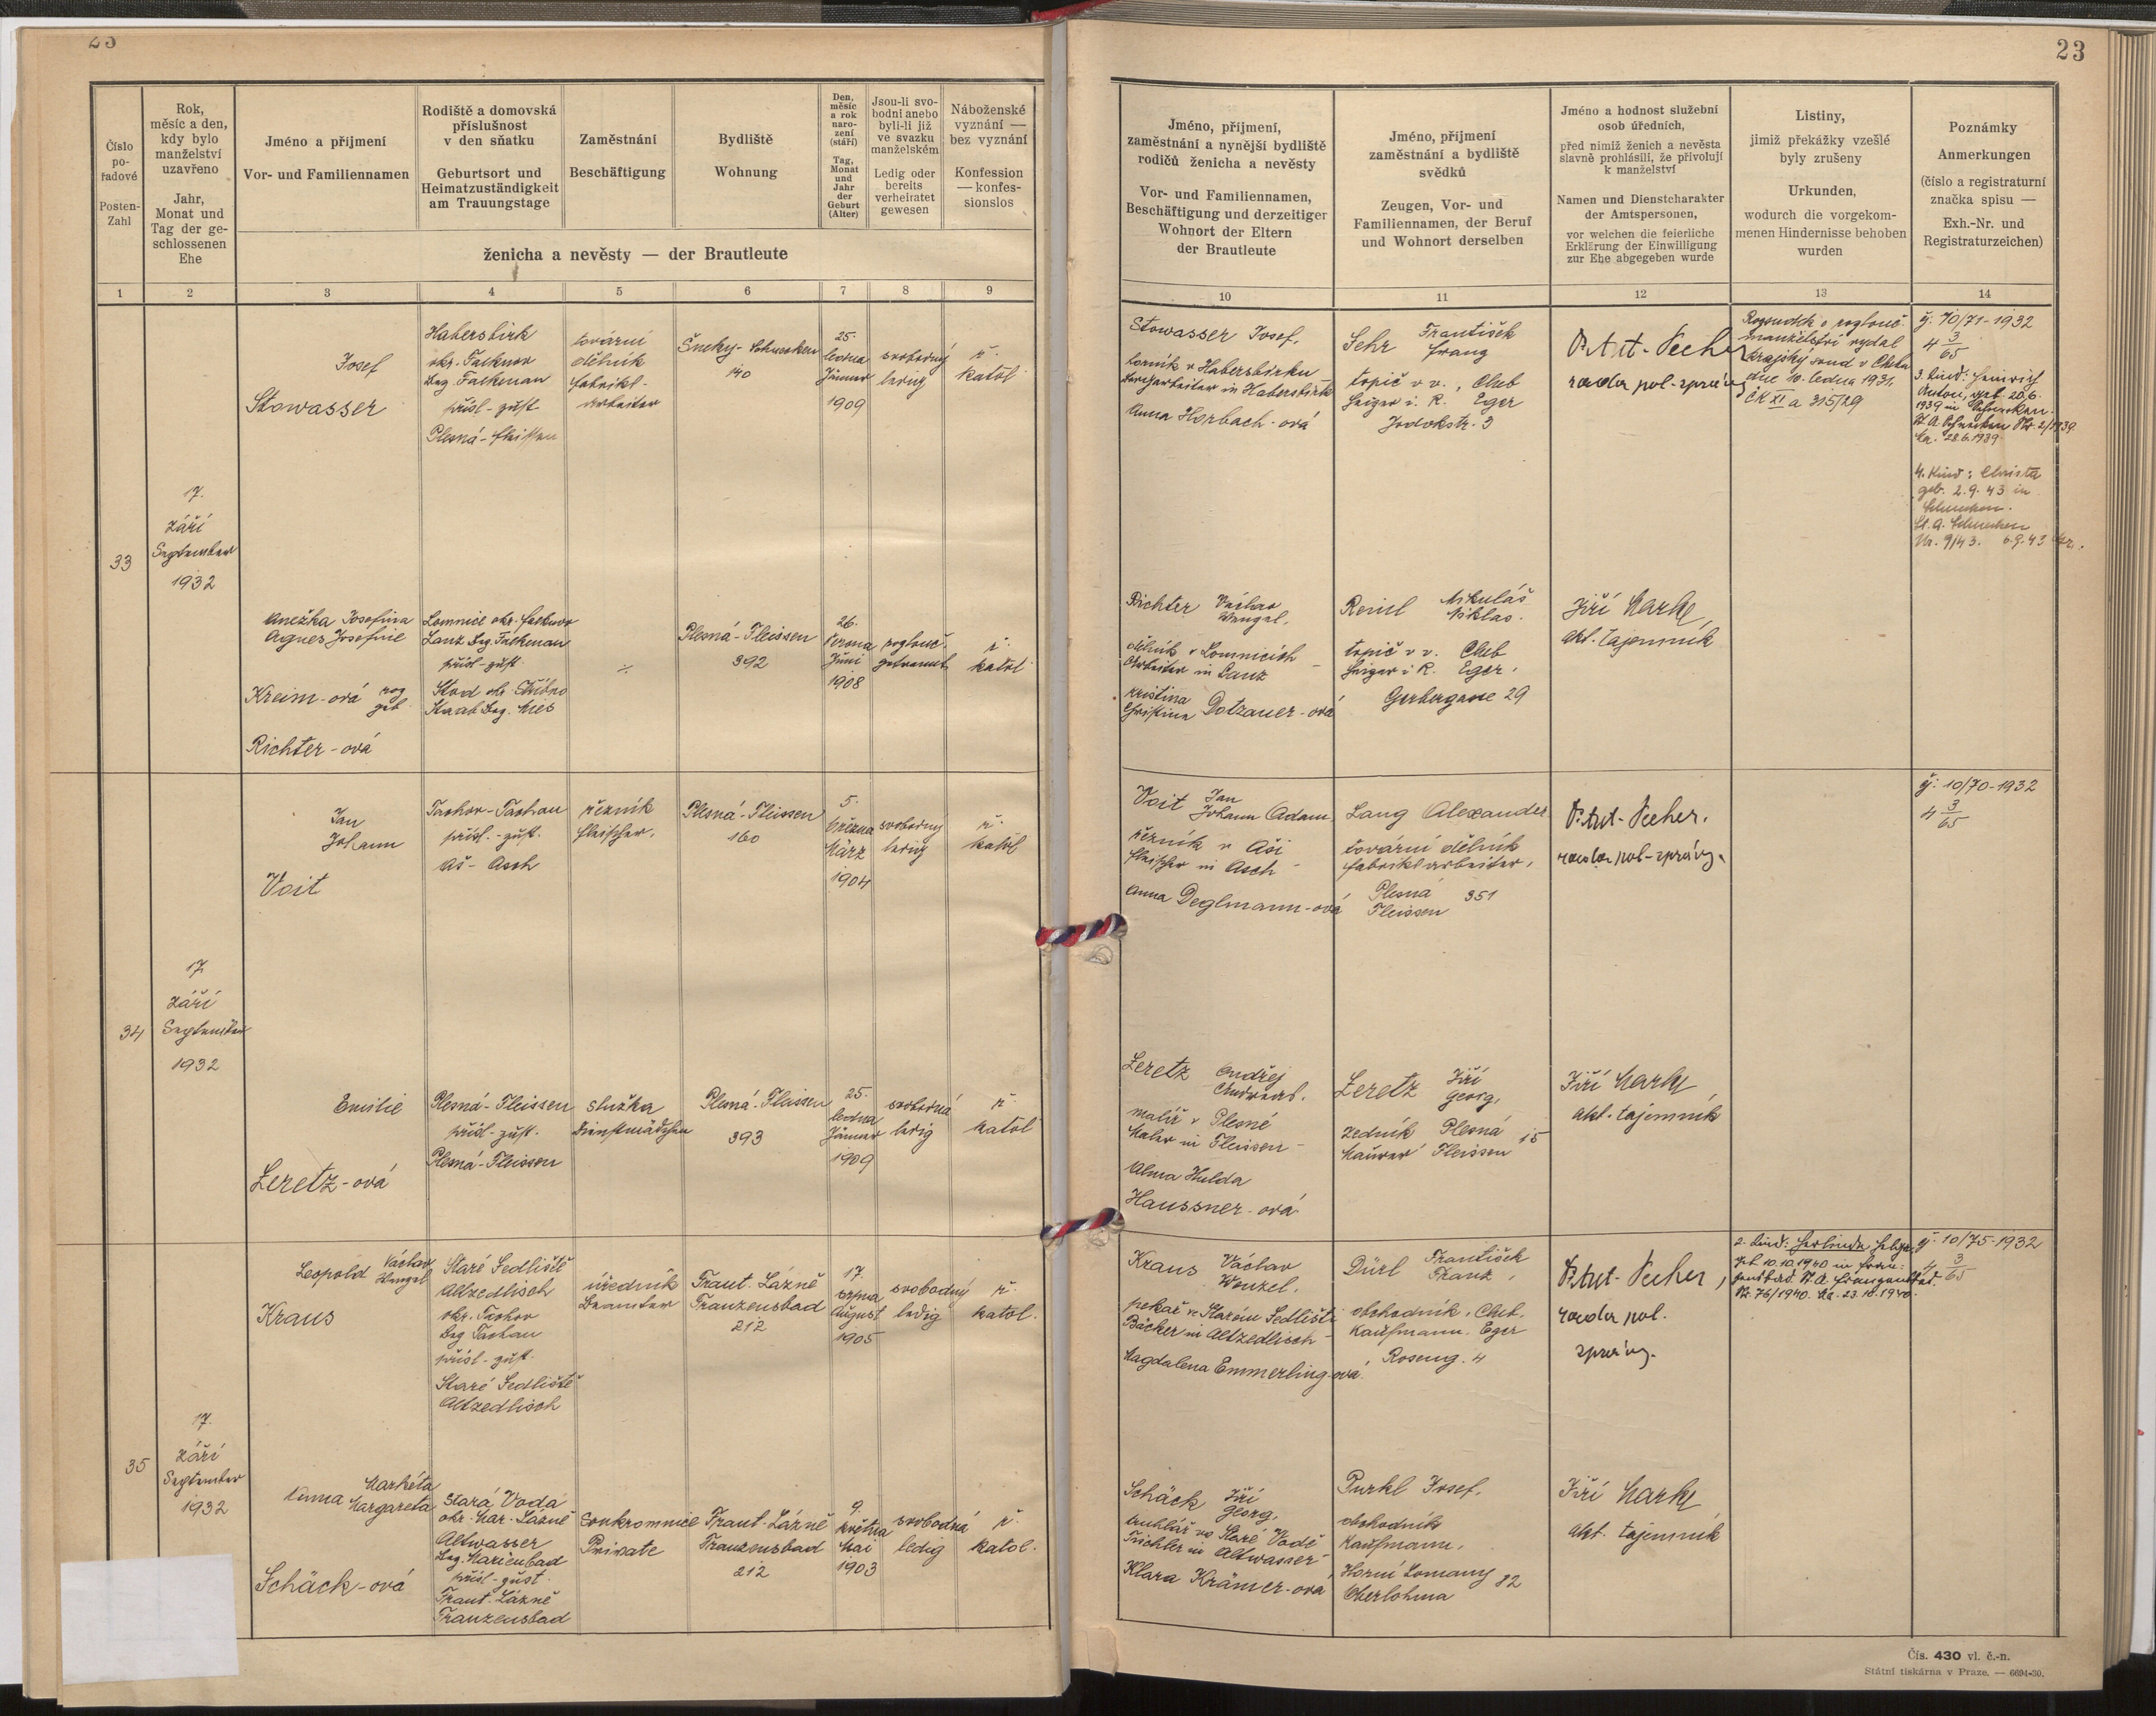 23
Číslo
po-
řadové
Posten-
Zahl
Rok,
měsíc a den,
kdy bylo
manželství
uzavřeno
Jahr,
Monat und
Tag der ge-
schlossenen
Ehe
Jméno a příjmení
Vor- und Familiennamen
Rodiště a domovská
příslušnost
v den sňatku
Geburtsort und
Heimatzuständigkeit
am Trauungstage
Zaměstnání
Beschäftigung
Bydliště
Wohnung
Den,
měsíc
a rok
naro-
zení
(stáří)
Tag,
Monat
und
Jahr
der
Geburt
(Alter)
Jsou-li svo-
bodni anebo
byli-li již
ve svazku
manželském
Ledig oder
bereits
verheiratet
gewesen
Náboženské
vyznání —
bez vyznání
Konfession
— konfes-
sionslos
ženicha a nevěsty — der Brautleute
1 2 3 4 5 6 7 8 9
33
17.
září
September
1932
Josef
Stowasser
Habersbirk
okr. Falknov
Bez. Falkenau
přísl.-zust.
Plesná-Fleissen
tovární
dělník
Fabriks-
arbeiter
Šneky-Schnecken
140
25.
ledna
Jänner
1909
svobodný
ledig
ř.
katol.
Anežka Josefina
Agnes Josefine
Kreim-ová roz.
geb.
Richter-ová
Lomnice okr. Falknov
Lanz Bez. Falkenau
přísl.-zust.
Stod okr. Stříbro
Staab Bez. Mies
÷
Plesná-Fleissen
392
26.
června
Juni
1908
rozlouč.
getrennt
ř.
katol.
34
17.
září
September
1932
Jan
Johann
Voit
Tachov-Tachau
přísl.-zust.
Aš-Asch
řezník
Fleischer.
Plesná-Fleissen
160
5.
března
März
1904
svobodný
ledig
ř.
katol.
Emilie
Leretz-ová
Plesná-Fleissen
přísl.-zust.
Plesná-Fleissen
služka
Dienstmädchen
Plesná-Fleissen
393
25.
ledna
Jänner
1909
svobodná
ledig
ř.
katol.
35
17.
září
September
1932
Leopold Václav
Wenzel
Kraus
Staré Sedliště
Altzedlisch
okr. Tachov
Bez. Tachau
přísl.-zust.
Staré Sedliště
Altzedlisch
úředník
Beamter
Frant. Lázně
Franzensbad
212
17.
srpna
August
1905
svobodný
ledig
ř.
katol.
Anna Markéta
Margareta
Schäck-ová
Stará Voda
okr. Mar. Lázně
Altwasser
Bez. Marienbad
přísl.-zust.
Frant. Lázně
Franzensbad
soukromnice
Private
Frant. Lázně
Franzensbad
212
9.
května
Mai
1903
svobodná
ledig
ř.
katol.
23
Jméno, příjmení,
zaměstnání a nynější bydliště
rodičů ženicha a nevěsty
Vor- und Familiennamen,
Beschäftigung und derzeitiger
Wohnort der Eltern
der Brautleute
Jméno, příjmení
zaměstnání a bydliště
svědků
Zeugen, Vor- und
Familiennamen, der Beruf
und Wohnort derselben
Jméno a hodnost služební
osob úředních,
před nimiž ženich a nevěsta
slavně prohlásili, že přivolují
k manželství
Namen und Dienstcharakter
der Amtspersonen,
vor welchen die feierliche
Erklärung der Einwilligung
zur Ehe abgegeben wurde
Listiny,
jimiž překážky vzešlé
byly zrušeny
Urkunden,
wodurch die vorgekom-
menen Hindernisse behoben
wurden
Poznámky
Anmerkungen
(číslo a registraturní
značka spisu —
Exh.-Nr. und
Registraturzeichen)
10 11 12 13 14
Stowasser Josef,
horník v Habersbirku
Bergarbeiter in Habersbirk
Anna Horbach-ová
Sehr František
Franz
topič v v., Cheb
Heizer i. R. Eger
Jodokstr. 3
rada pol. správy
Rozsudek o rozlouč.
manželství vydal
krajský soud v Chebu
dne 10. ledna 1931.
Ck XI a 315/29
č. 10/71-1932
4 3/65
3. Kind: Heinrich
Anton, geb. 20.6.
1939 in Schnecken.
St. A. Schnecken Nr. 2/1939
28.6.1939
4. Kind: Christa
geb. 2.9.43 in
Schnecken.
St. A. Schnecken
Nr. 9/43. 6.9.43
Richter Václav
Wenzel,
dělník v Lomnicích
Arbeiter in Lanz
Kristina
Christina Dotzauer-ová
Mikuláš
Niklas.
topič v v. Cheb
Heizer i. R. Eger,
Gerbergasse 29
Jiří
akt. tajemník
Voit Jan
Johann Adam,
řezník v Aši
Fleischer in Asch
Anna Deglmann-ová
Lang Alexander
tovární dělník
Fabriksarbeiter,
Plesná
Fleissen 351
rada pol. správy.
č: 10/70-1932
4 3/65
Leretz Ondřej
Andreas.
malíř v Plesné
Maler in Fleissen
Alma Hulda
Haussner-ová
Leretz Jiří
Georg,
zedník Plesná
Maurer Fleissen 15
Jiří
akt. tajemník
Kraus Václav
Wenzel.
pekař ve Starém Sedlišti
Bäcker in Altzedlisch
Magdalena Emmerling-ová.
Dürl František
Franz,
obchodník, Cheb,
Kaufmann. Eger
Roseng. 4
rada pol.
správy.
2. Kind: Herlinde Helga,
geb. 10.10.1940 in Fran-
zensbad. St. A. Franzensbad.
Nr. 76/1940. 23.10.1940.
č. 10/75-1932
4 3/65
Schäck Jiří
Georg,
truhlář ve Staré Vodě
Tischler in Altwasser
Klara Krämer-ová
Purkl Josef,
obchodník
Kaufmann,
Horní Lomany 82
Oberlohma
Jiří
akt. tajemník
Čís. 430 vl. č.-n.
Státní tiskárna v Praze. — 6694-30.